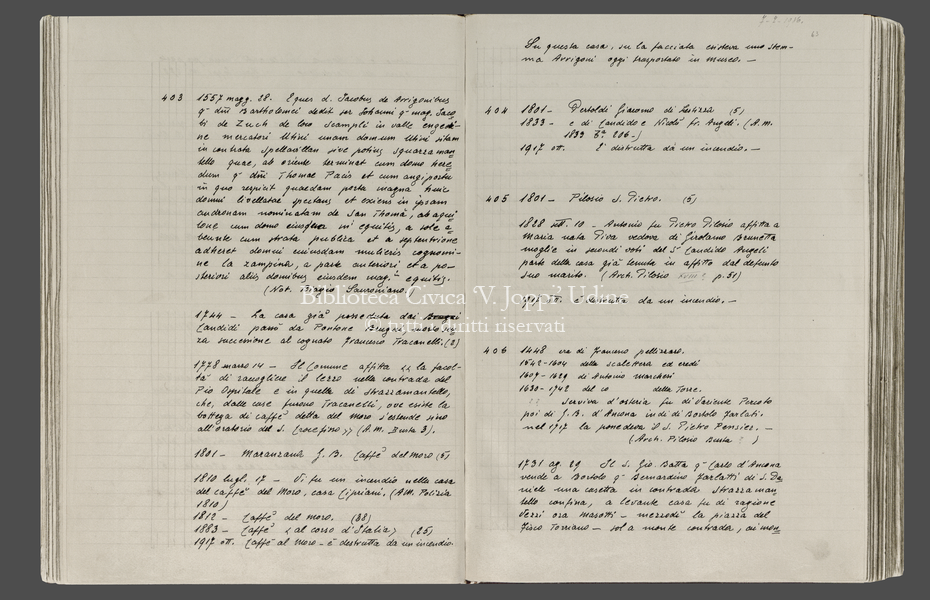 403 1557 magg. 28. Eques d. Jacobus de Arrigonibus
q. dñi Bartholomei dedit ser Johanni q. mag. Jaco
bi de Zuch de loco Scampli in valle
ne mercatori Utini unam domum Utini sitam
in contrata sive potius Squarzaman
tello quae, ab oriente terminat cum domo here
dum q. dñi Thomae Pacis et cum angiportu
in quo respicit quaedam porta magna huic
domui livellatae spectans et exiens in ipsam
andronam nominatam de San Thomà, ab aqui
lone cum domo eiusdem equitis, a sole a
beunte cum strata publica et a septentrione
adheret domui cuiusdam mulieris cognomi-
ne la Zampina, a parte anteriori et a po-
steriori aliis domibus eiusdem mag. equitis.
(Not.
1744 - La casa già posseduta dai
Candidi passò da Pontone
za successione al cognato Francesco Tracanelli. (2)
1778 marzo 14 - Il Comune affitta << la facol-
tà di raccogliere il terzo nella contrada del
Pio Ospitale e in quella di Strazzamantello,
che, dalle case furono Tracanelli, ove esiste la
bottega di caffè detta del Moro s'estende sino
all'oratorio del S. Crocefisso >> (A.M. Busta 3).
1801 - Maranzana G. B. Caffè del Moro (5)
1810 lugl. 17 - Vi fu un incendio nella casa
del caffè del Moro, casa Cipriani. (A.M. Polizia
1810)
1812 - Caffè del Moro. (38)
1883 - Caffè < al corso d'Italia > (25)
1917 ott. Caffè al Moro - è distrutta da un incendio.
Su questa casa, su la facciata esisteva uno stem-
ma Arrigoni oggi trasportato in museo. -
404 1801 - Bertoldi Giacomo di Lestizza (5)
1833 - e di Candido e Nicolò fr. Angeli. (A.M.
1833
1917 ott. È distrutta da un incendio. -
405 1801 - Pilosio S. Pietro. (5)
1828 ott. 10 - Antonio fu Pietro Pilosio affitta a
Maria nata Piva vedova di Girolamo Brunetta
moglie in secondi voti del S. Candido Angeli
parte della casa già tenuta in affitto dal defunto
suo marito. (Arch. Pilosio p. 51)
1917 ott. è distrutta da un incendio. -
406 1448 era di Francesco pellizzaro.
1542-1604 della scalettera ed eredi
1607-1629 di Antonio marchesi
1630-1742 del co della Torre.
Serviva d'osteria fu di Variente Percoto
poi di G. B. d'Ancona indi di Bortolo Farlati.
nel 1717 la possedeva il S. Pietro Pensier. -
(Arch. Pilosio Busta )
1731 ag. 29 Il S. Gio. Batta q. Carlo d'Ancona
vende a Bortolo q. Bernardino Farlatti di S. Da
niele una casetta in contrada Strazzaman
tello confina, a levante casa fu di ragione
Verzi ora Masotti - mezzodì la piazza del
fisco Torriano - sol a monte contrada, ai mon
Biblioteca Civica 'V. Joppi' Udine
© tutti i diritti riservati